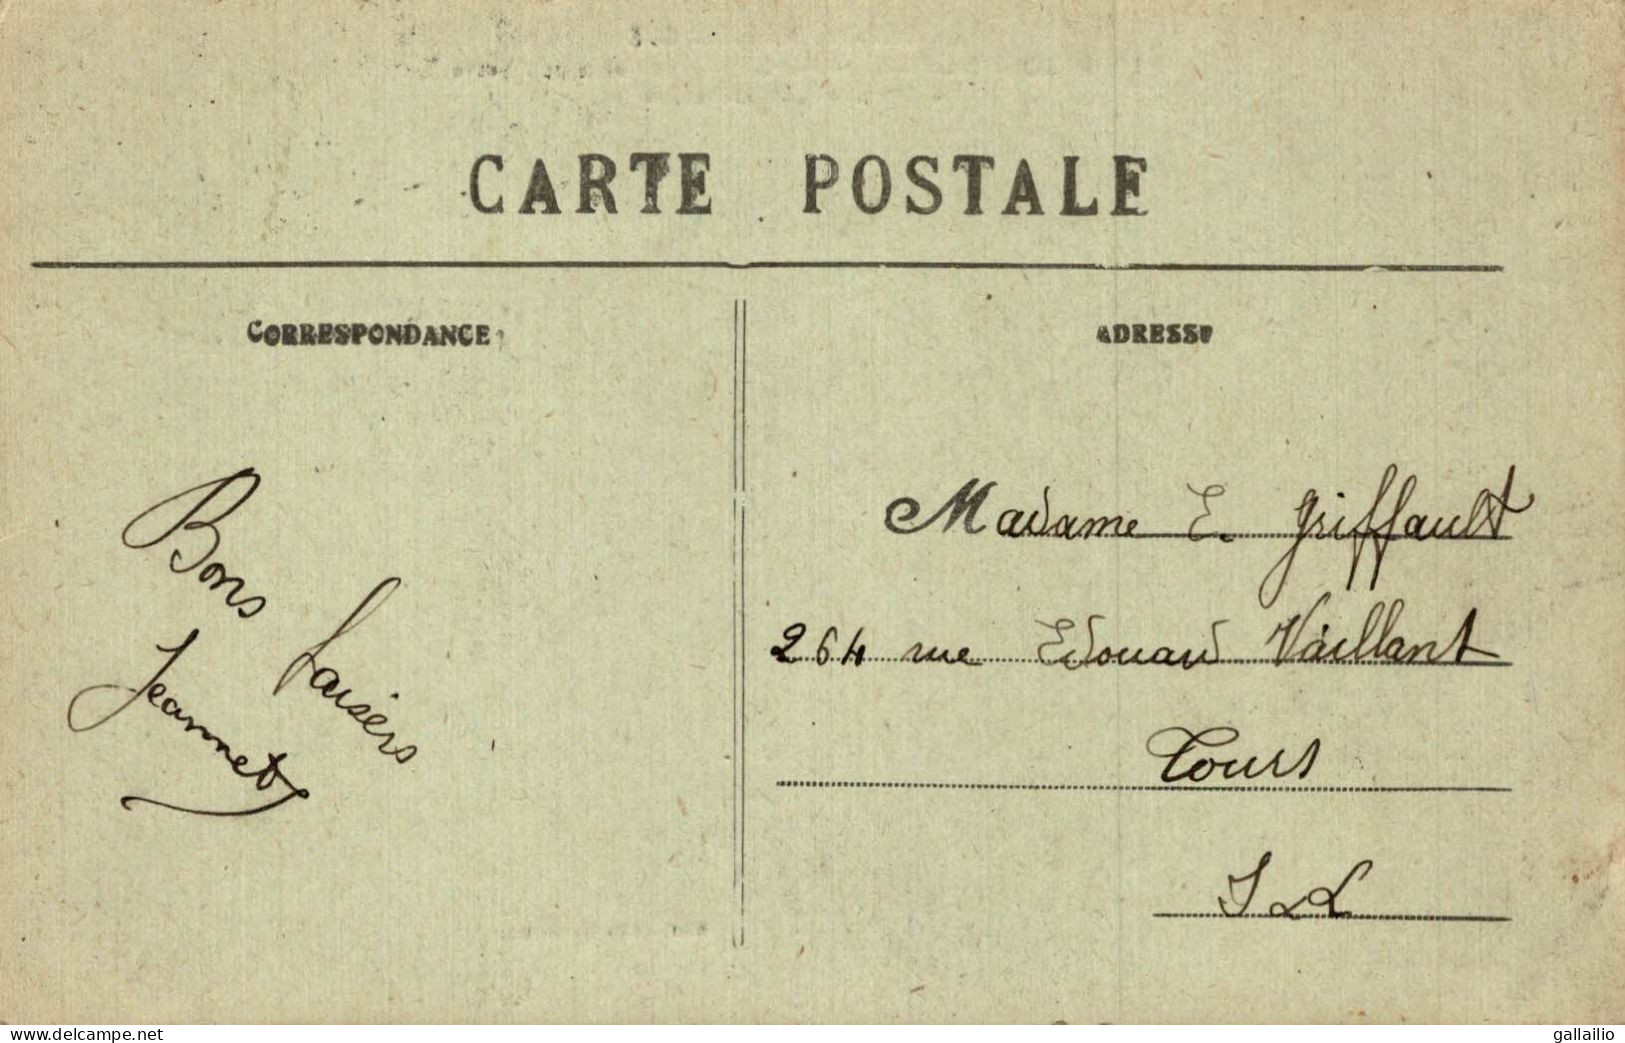 CARTE POSTALE
CORRESPONDANCE
ADRESSE
Bons baisers
Jeannet
Madame E. Griffault
264 rue Edouard Vaillant
Tours
I & L
www.delcampe.net
gallailio